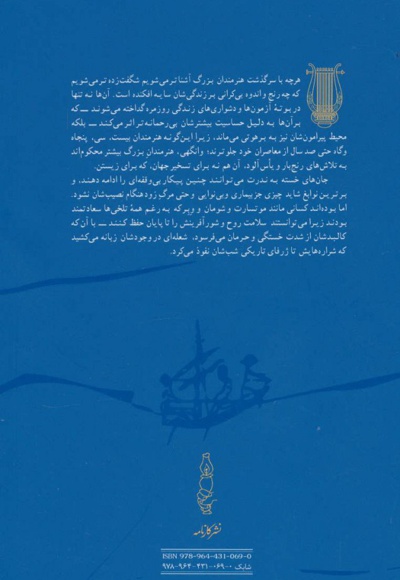 هرچه با سرگذشت هنرمندان بزرگ آشناتر می‌شویم شگفت‌زده‌تر می‌شویم
که چه رنج و اندوه بی‌کرانی بر زندگی‌شان سایه افکنده است. آن‌ها نه تنها
در بوتهٔ آزمون‌ها و دشواری‌های زندگی روزمره گداخته می‌شوند ـــ که
بر آن‌ها به دلیل حساسیت بیشترشان بی‌رحمانه‌تر اثر می‌کند ـــ بلکه
محیط پیرامون‌شان نیز به برهوتی می‌ماند، زیرا این‌گونه هنرمندان بیست، سی، پنجاه
وگاه حتی صد سال از معاصران خود جلوترند؛ وانگهی، هنرمندان بزرگ بیشتر محکوم‌اند
به تلاش‌های رنج‌بار و یأس‌آلود، آن هم نه برای تسخیر جهان، که برای زیستن.
جان‌های خسته به ندرت می‌توانند چنین پیکار بی‌وقفه‌ای را ادامه دهند، و
برترین نوابغ شاید چیزی جز بیماری و بی‌نوایی و حتی مرگ زودهنگام نصیب‌شان نشود.
اما بوده‌اند کسانی مانند موتسارت و شومان و وبر که به رغم همهٔ تلخی‌ها سعادتمند
بودند زیرا می‌توانستند سلامت روح و شور آفرینش را تا پایان حفظ کنند ـــ با آن که
کالبدشان از شدت خستگی و حرمان می‌فرسود، شعله‌ای در وجودشان زبانه می‌کشید
که شراره‌هایش تا ژرفای تاریکی شب‌شان نفوذ می‌کرد.
نشر کارنامه
ISBN 978-964-431-069-0
شابک ۹۷۸-۹۶۴-۴۳۱-۰۶۹-۰